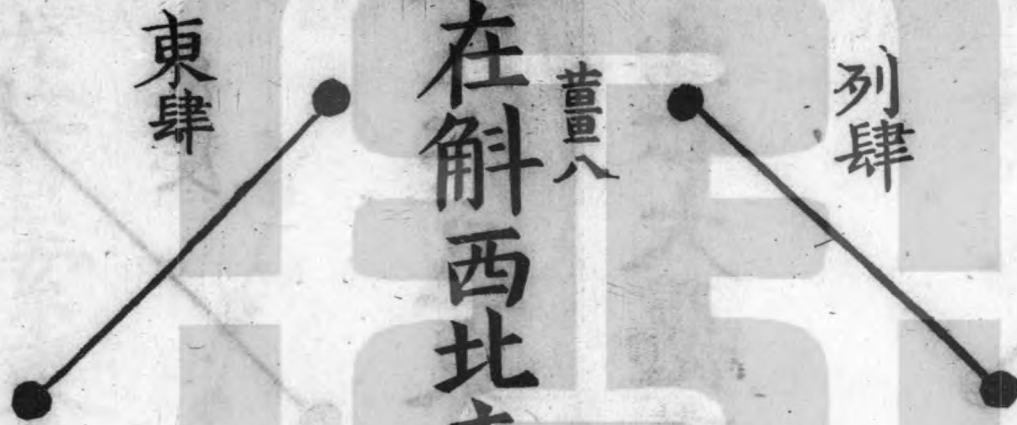 列肆
薑八
在斛西北
東肆